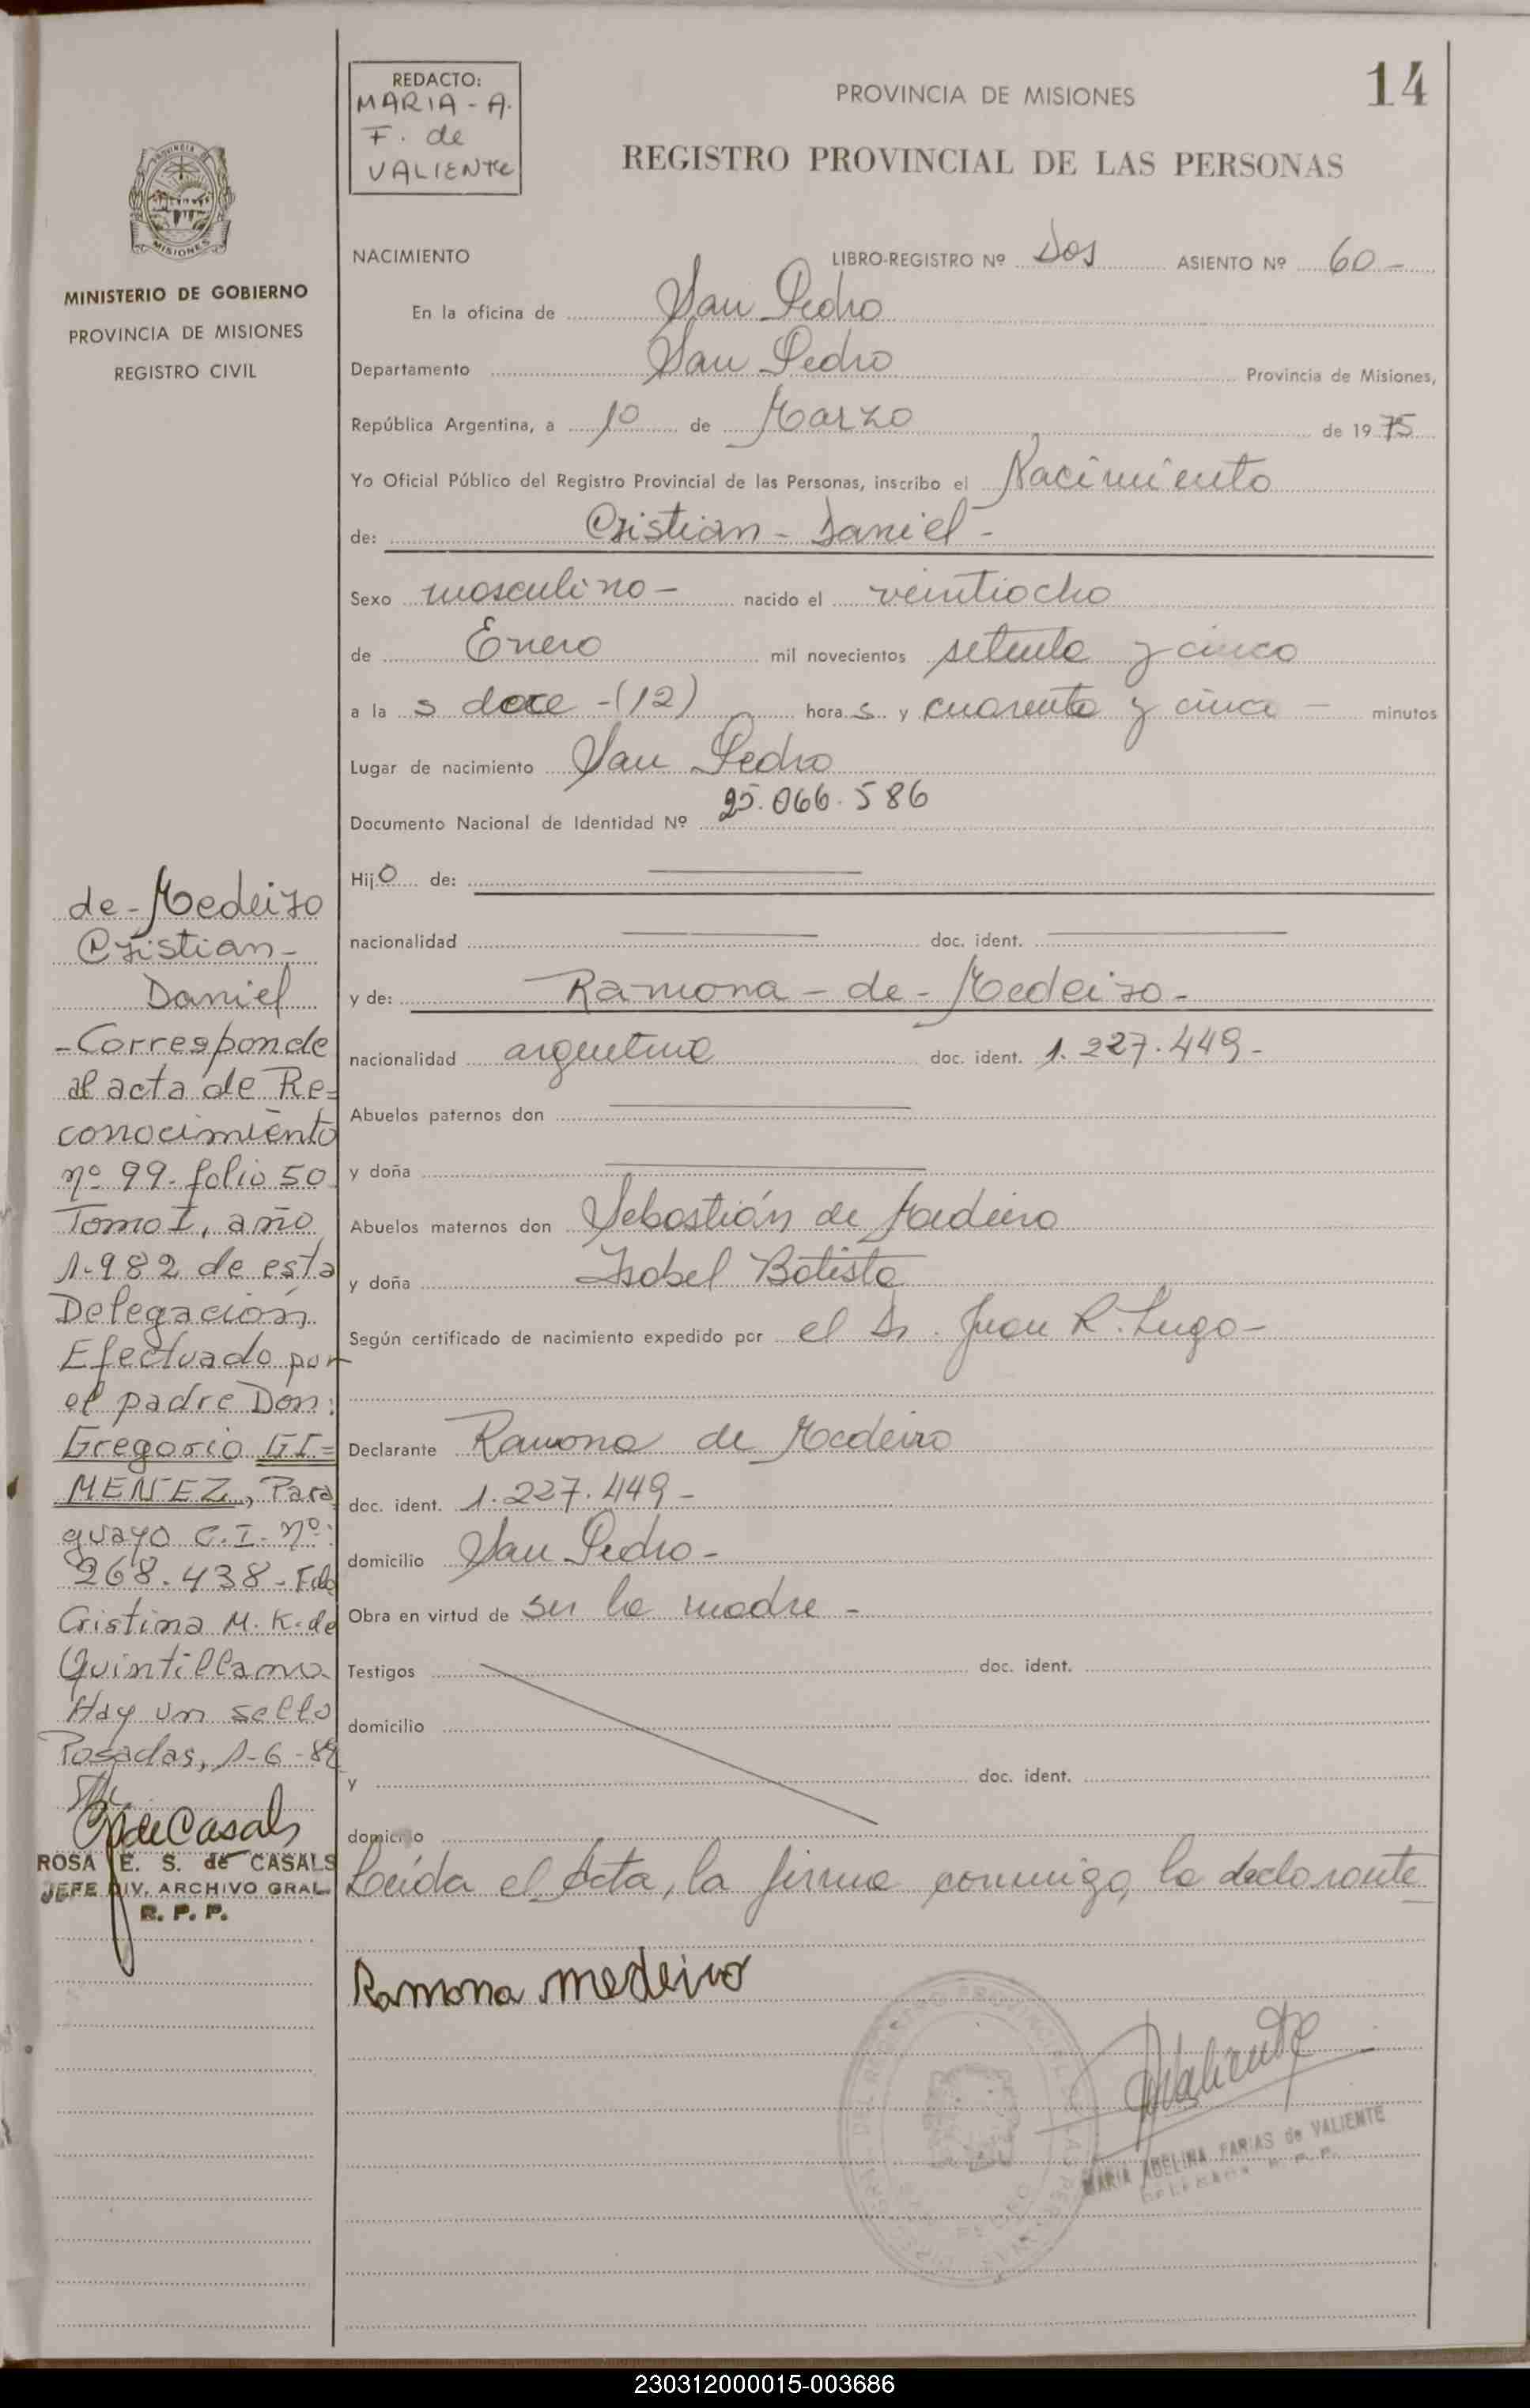 14
REDACTO:
MARIA - A.
F. de
VALIENTE
PROVINCIA DE MISIONES
REGISTRO PROVINCIAL DE LAS PERSONAS
PROVINCIA DE
MISIONES
MINISTERIO DE GOBIERNO
PROVINCIA DE MISIONES
REGISTRO CIVIL
NACIMIENTO LIBRO-REGISTRO Nº Dos ASIENTO Nº 60 -
En la oficina de San Pedro
Departamento San Pedro Provincia de Misiones,
República Argentina, a 10 de Marzo de 1975
Yo Oficial Público del Registro Provincial de las Personas, inscribo el Nacimiento
de: Cristian - Daniel -
Sexo masculino - nacido el veintiocho
de Enero mil novecientos setenta y cinco
a la s doce - (12) hora s y cuarenta y cinco - minutos
Lugar de nacimiento San Pedro
Documento Nacional de Identidad Nº 25.066.586
Hijo de:
nacionalidad doc. ident.
y de: Ramona - de - Medeiro -
nacionalidad argentina doc. ident. 1.227.449 -
Abuelos paternos don
y doña
Abuelos maternos don Sebastián de Medeiro
y doña Isabel Batista
Según certificado de nacimiento expedido por el Dr. Juan R. Lugo -
Declarante Ramona de Medeiro
doc. ident. 1.227.449 -
domicilio San Pedro -
Obra en virtud de ser la madre -
Testigos doc. ident.
domicilio
y doc. ident.
domicilio
Leída el Acta, la firma conmigo, la declarante
Ramona medeiro
Valiente
MARIA ADELINA FARIAS de VALIENTE
de - Medeiro
Cristian -
Daniel
- Corresponde
al acta de Re=
conocimiento
nº 99 - folio 50
Tomo I, año
1.982 de esta
Delegación
Efectuado por
el padre Don:
Gregorio GI=
MENEZ, Para
guayo C.I. nº:
268.438 - Fdo
Cristina M. K. de
Quintillamo.
Hay un sello
Posadas, 1-6-82
de Casals
ROSA E. S. de CASALS
JEFE DIV. ARCHIVO GRAL.
R. P. P.
230312000015-003686